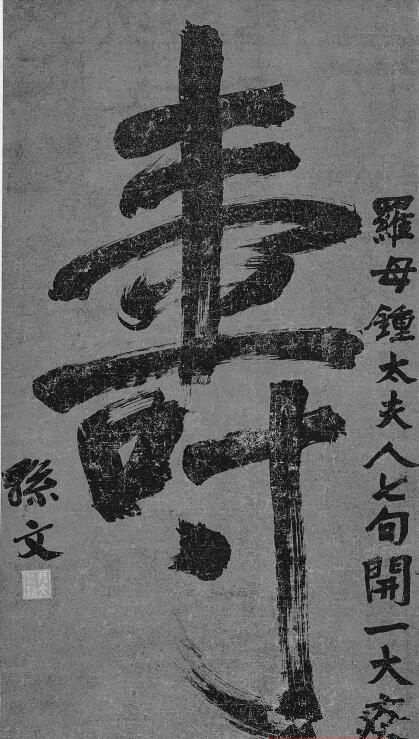 羅母鍾太夫人七旬開一大慶
壽
孫文